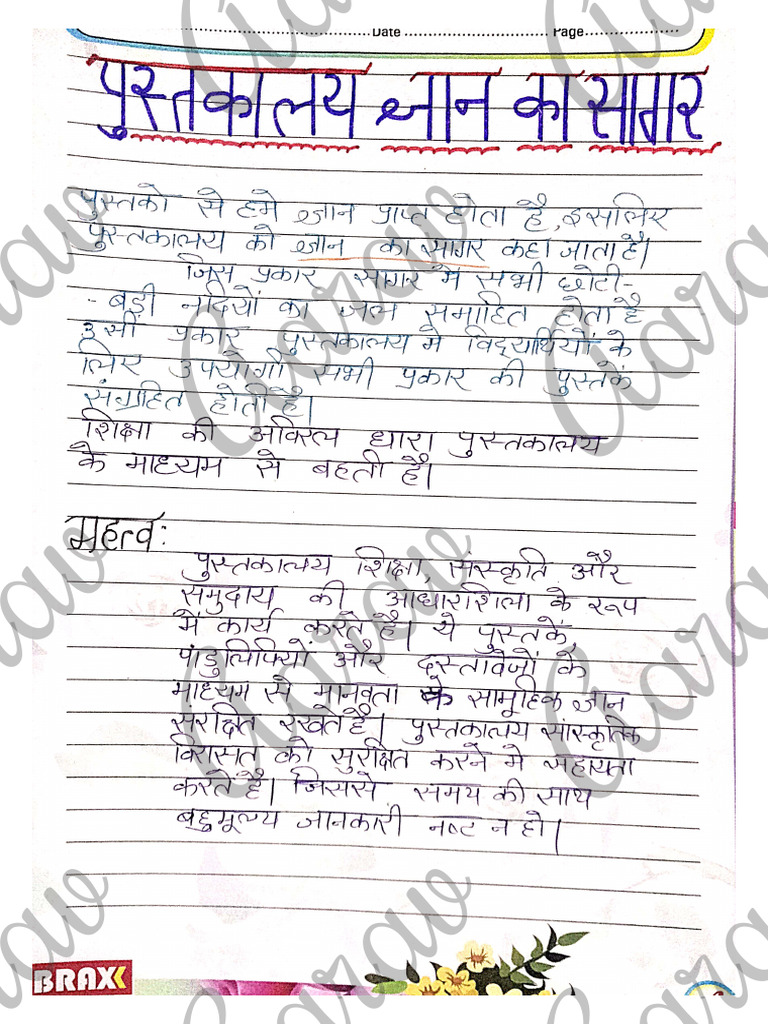 Date Page
पुस्तकालय ज्ञान का सागर
पुस्तको से हमे ज्ञान प्राप्त होता है, इसलिए
पुस्तकालय को ज्ञान का सागर कहा जाता है।
जिस प्रकार सागर मे सभी छोटी-
- बड़ी नदियों का जल समाहित होता है
उसी प्रकार पुस्तकालय मे विद्यार्थियों के
लिए उपयोगी सभी प्रकार की पुस्तकें
संग्रहित होती है।
शिक्षा की अविरल धारा पुस्तकालय
के माध्यम से बहती है।
महत्व :
पुस्तकालय शिक्षा, संस्कृति और
समुदाय की आधारशिला के रूप
में कार्य करते है। ये पुस्तकें,
पांडुलिपियों और दस्तावेजों के
माध्यम से मानवता के सामूहिक ज्ञान
सरक्षित रखते है। पुस्तकालय सांस्कृतिक
विरासत को सुरक्षित करने मे सहायता
करतें है। जिससे समय की साथ
बहुमूल्य जानकारी नष्ट न हो।
BRAX
Aarav